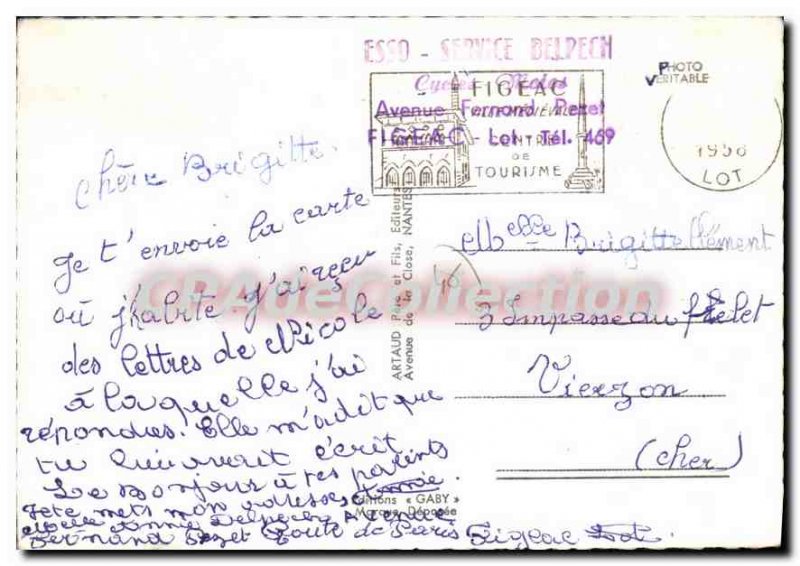 ESSO - SERVICE BELPECH
Cycles - Motos
Avenue Fernand Pezet
FIGEAC - Lot Tél. 469
FIGEAC
CENTRE
DE
TOURISME
PHOTO
VERITABLE
1958
LOT
Chère Brigitte.
Je t'envoie la carte
où j'habite j'ai reçu
des lettres de Nicole
à laquelle j'ai
répondus. Elle m'a dit que
tu lui avait écrit
Le Bonjour à tes parents
je te mets mon adresse Annie
Melle Annie Belpech Avenue
Fernand Pezet Route de Paris Figeac Lot.
ARTAUD Père et Fils, Editeurs
Avenue de la Close, NANTES
Editions « GABY »
Marque Déposée
Melle Brigitte Clément
3 Impasse du
Vierzon
(Cher)
CPAdeCollection